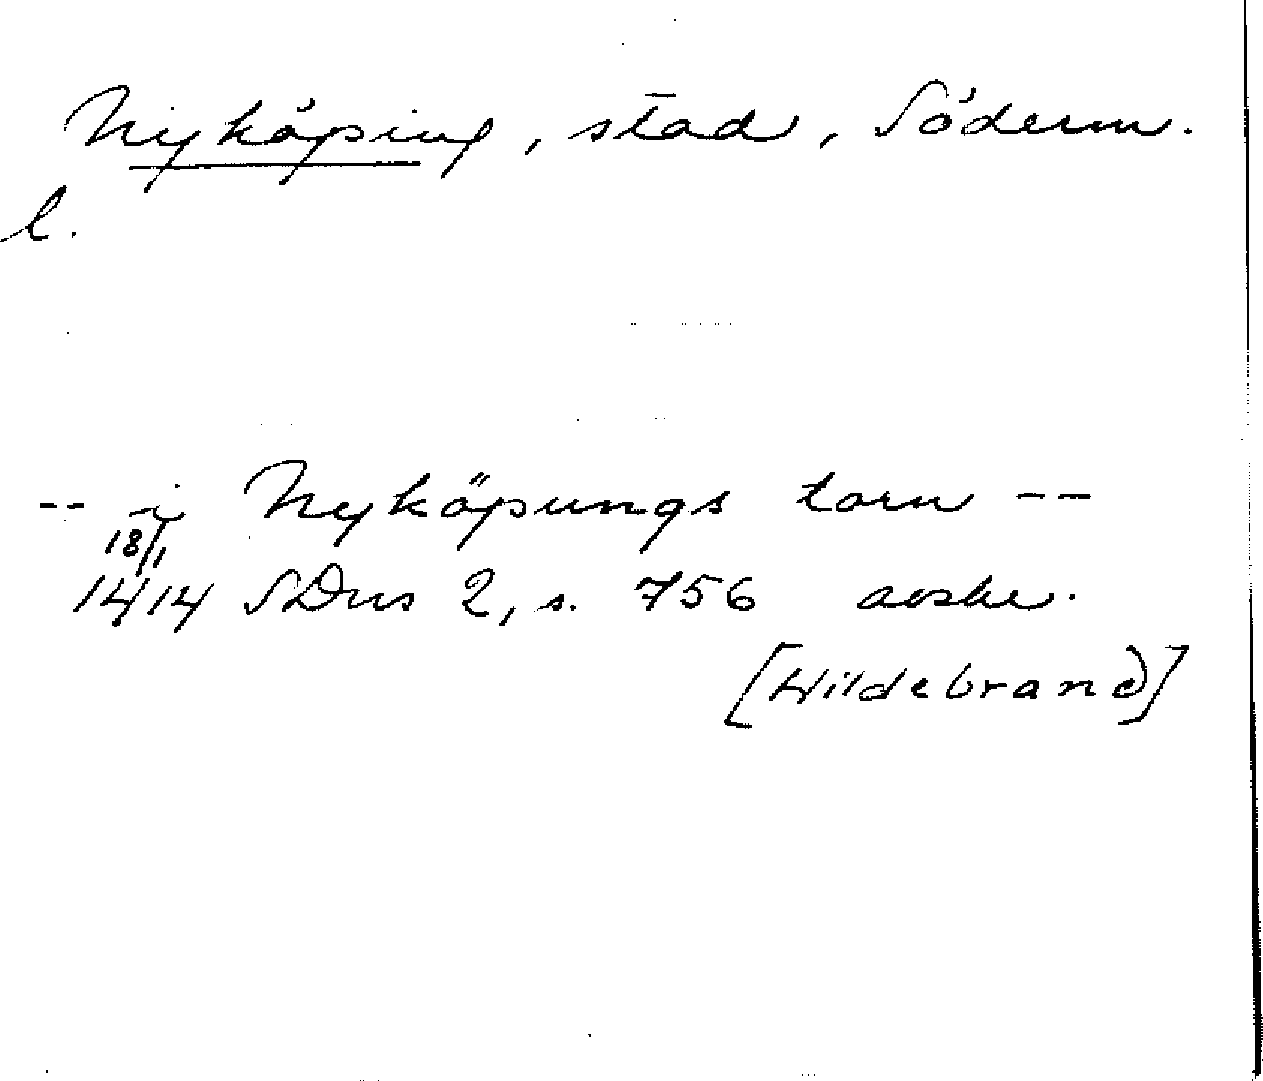 Nyköping, stad, Söderm.
l.
-- i Nyköpungs torn --
18/1
1414 SDns 2, s. 756 avskr.
[Hildebrand]